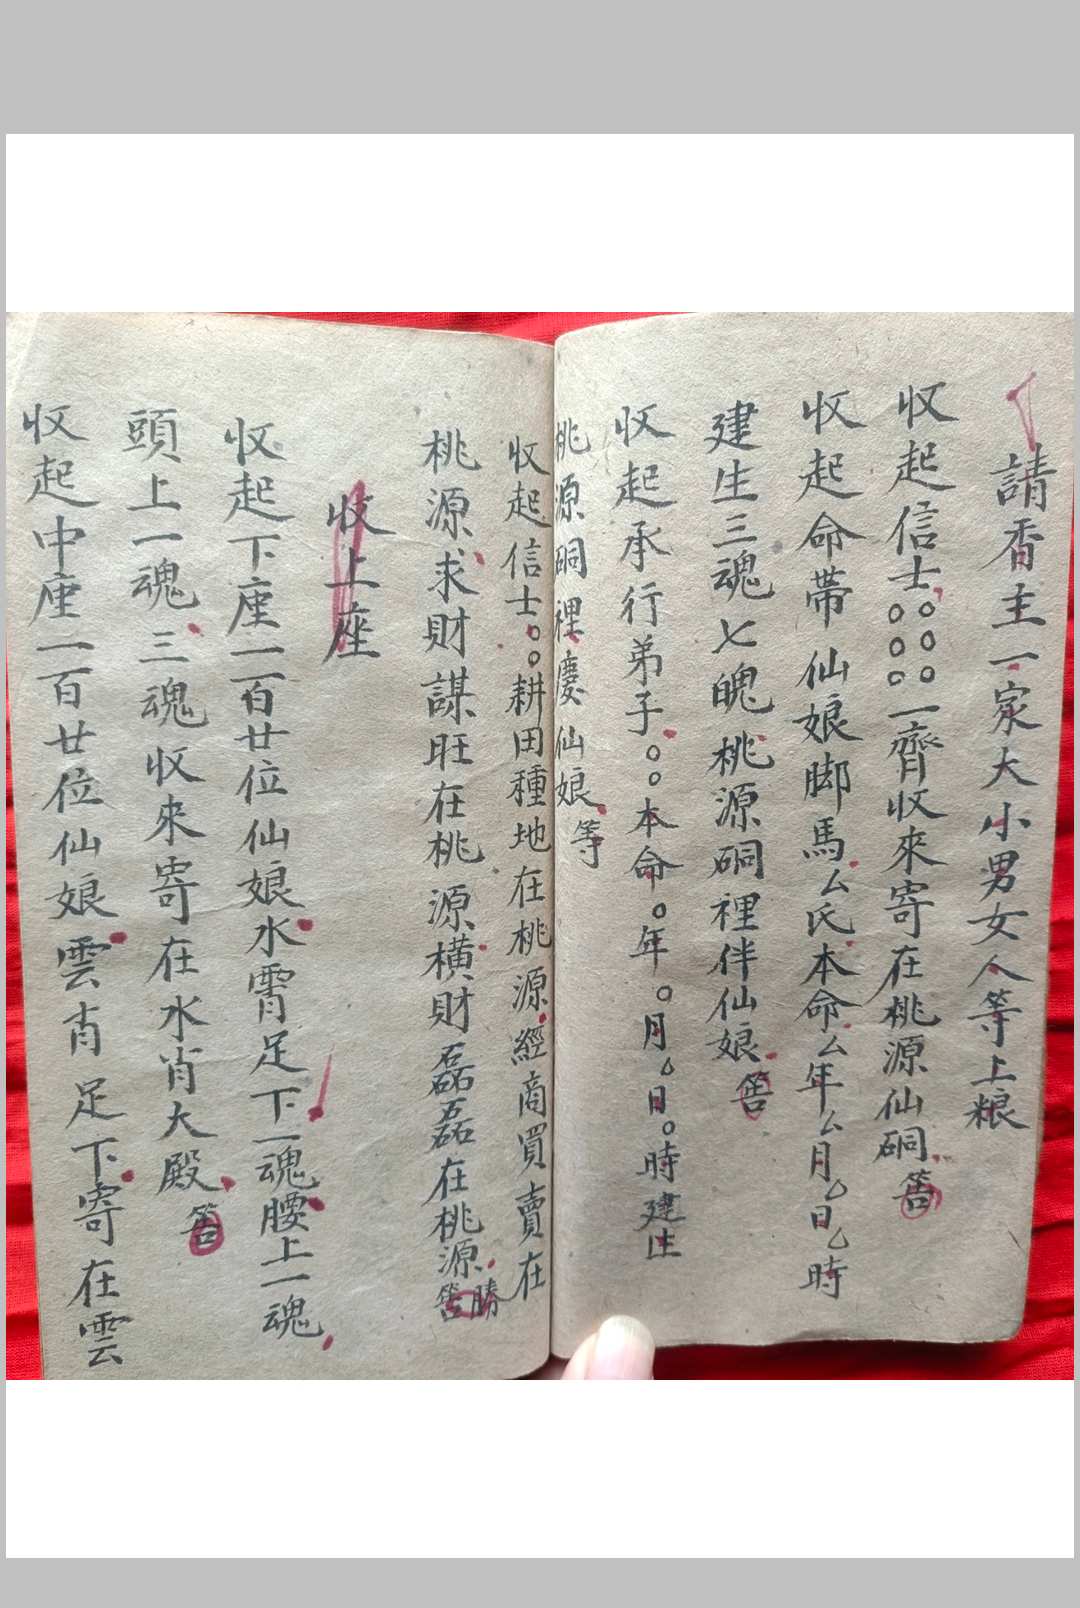 請香主一家大小男女人等上粮
收起信士○○○○○○一齊收來寄在桃源仙硐 筶
收起命帶仙娘脚馬厶氏本命厶年厶月○日○時
建生三魂七魄桃源硐裡伴仙娘 筶
收起承行弟子○○本命○年○月○日○時建生
桃源硐裡慶仙娘 等
收起信士○○耕田種地在桃源經商買賣在
桃源求財謀旺在桃源橫財磊磊在桃源 勝筶
收上座
收起下座一百廿位仙娘水霄足下一魂腰上一魂
頭上一魂三魂收來寄在水肖大殿 筶
收起中座一百廿位仙娘雲肖足下寄在雲